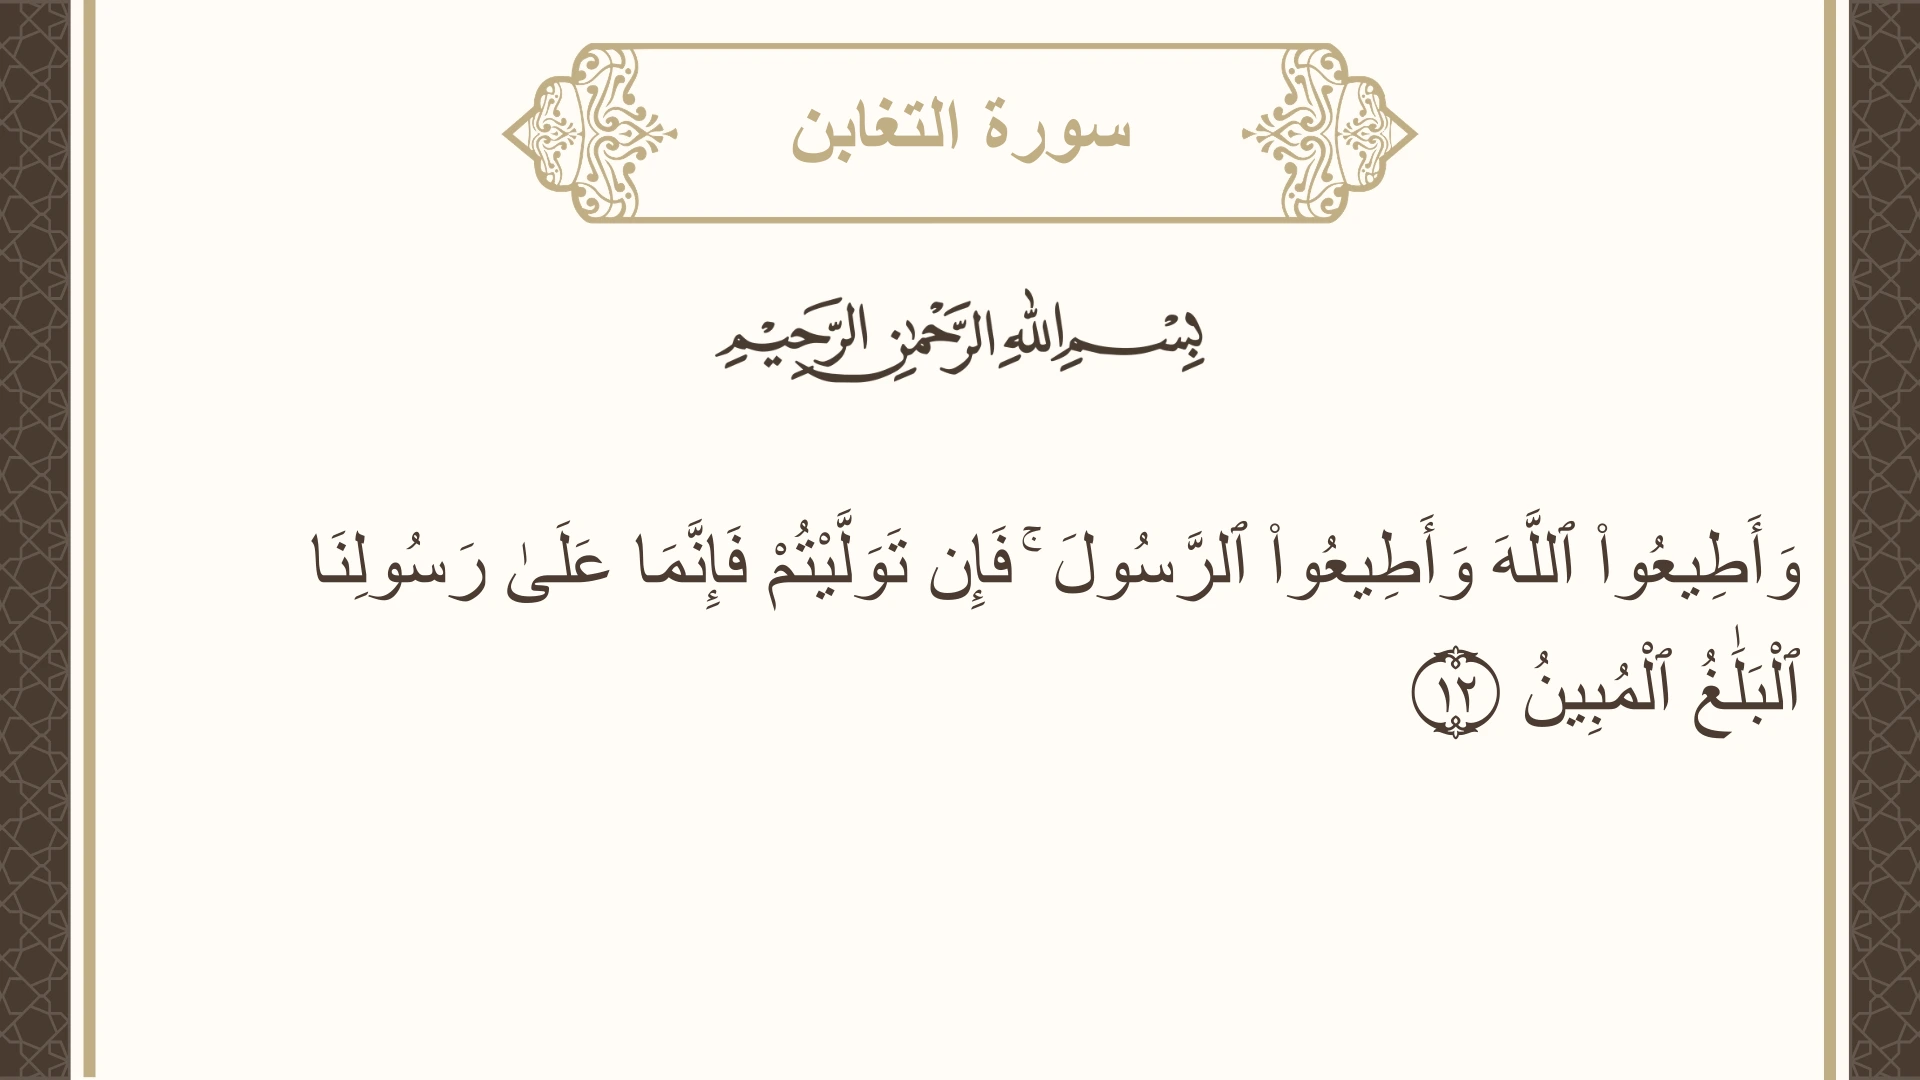 سورة التغابن
بِسْمِ اللهِ الرَّحْمٰنِ الرَّحِيْمِ
وَأَطِيعُوا۟ ٱللَّهَ وَأَطِيعُوا۟ ٱلرَّسُولَ ۚ فَإِن تَوَلَّيْتُمْ فَإِنَّمَا عَلَىٰ رَسُولِنَا
ٱلْبَلَٰغُ ٱلْمُبِينُ ۝١٢